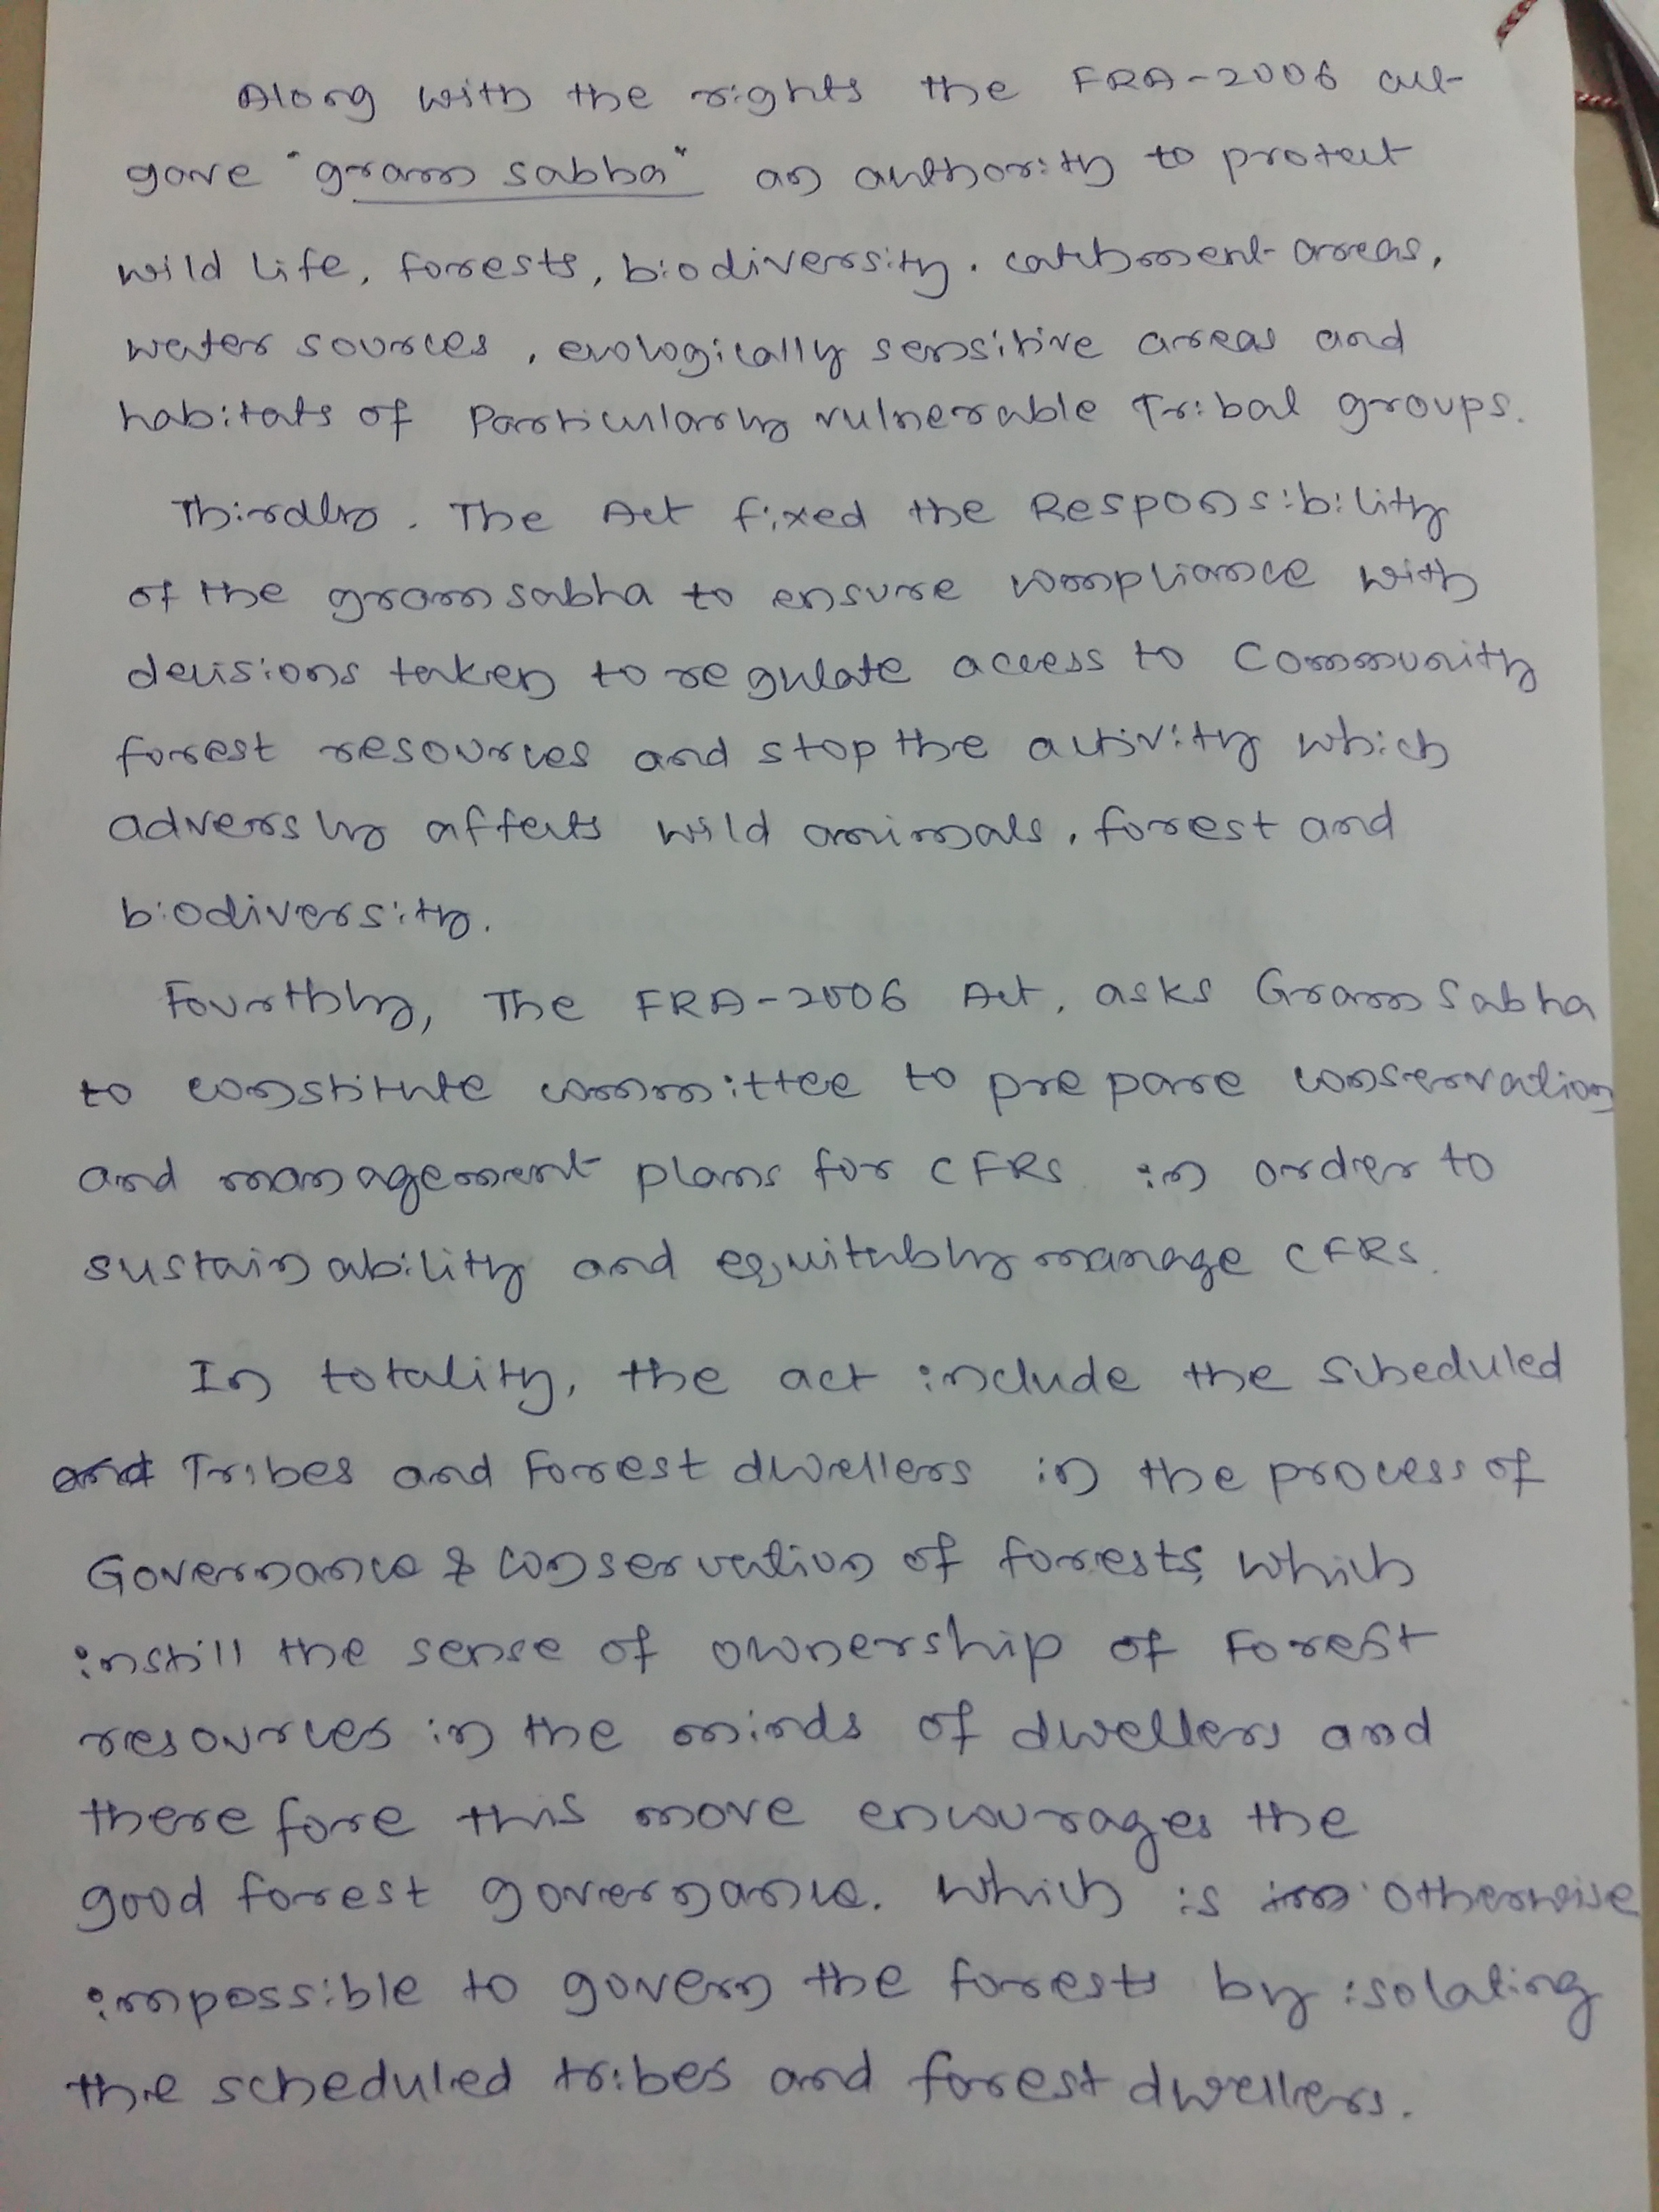 Along with the rights the FRA-2006 act
gave "gram sabha" an authority to protect
wild life, forests, biodiversity, catchment areas,
water sources, ecologically sensitive areas and
habitats of Particularly vulnerable Tribal groups.
Thirdly, The Act fixed the Responsibility
of the gram sabha to ensure compliance with
decisions taken to regulate access to Community
forest resources and stop the activity which
adversly affects wild animals, forest and
biodiversity.
Fourthly, The FRA-2006 Act, asks Gram Sabha
to constitute committee to prepare conservation
and management plans for CFRs in order to
sustainability and equitably manage CFRs.
In totality, the act include the Scheduled
and Tribes and Forest dwellers in the process of
Governance & conservation of forests, which
instill the sense of ownership of Forest
resources in the minds of dwellers and
therefore this move encourages the
good forest governance. Which is im otherwise
impossible to govern the forests by isolating
the scheduled tribes and forest dwellers.